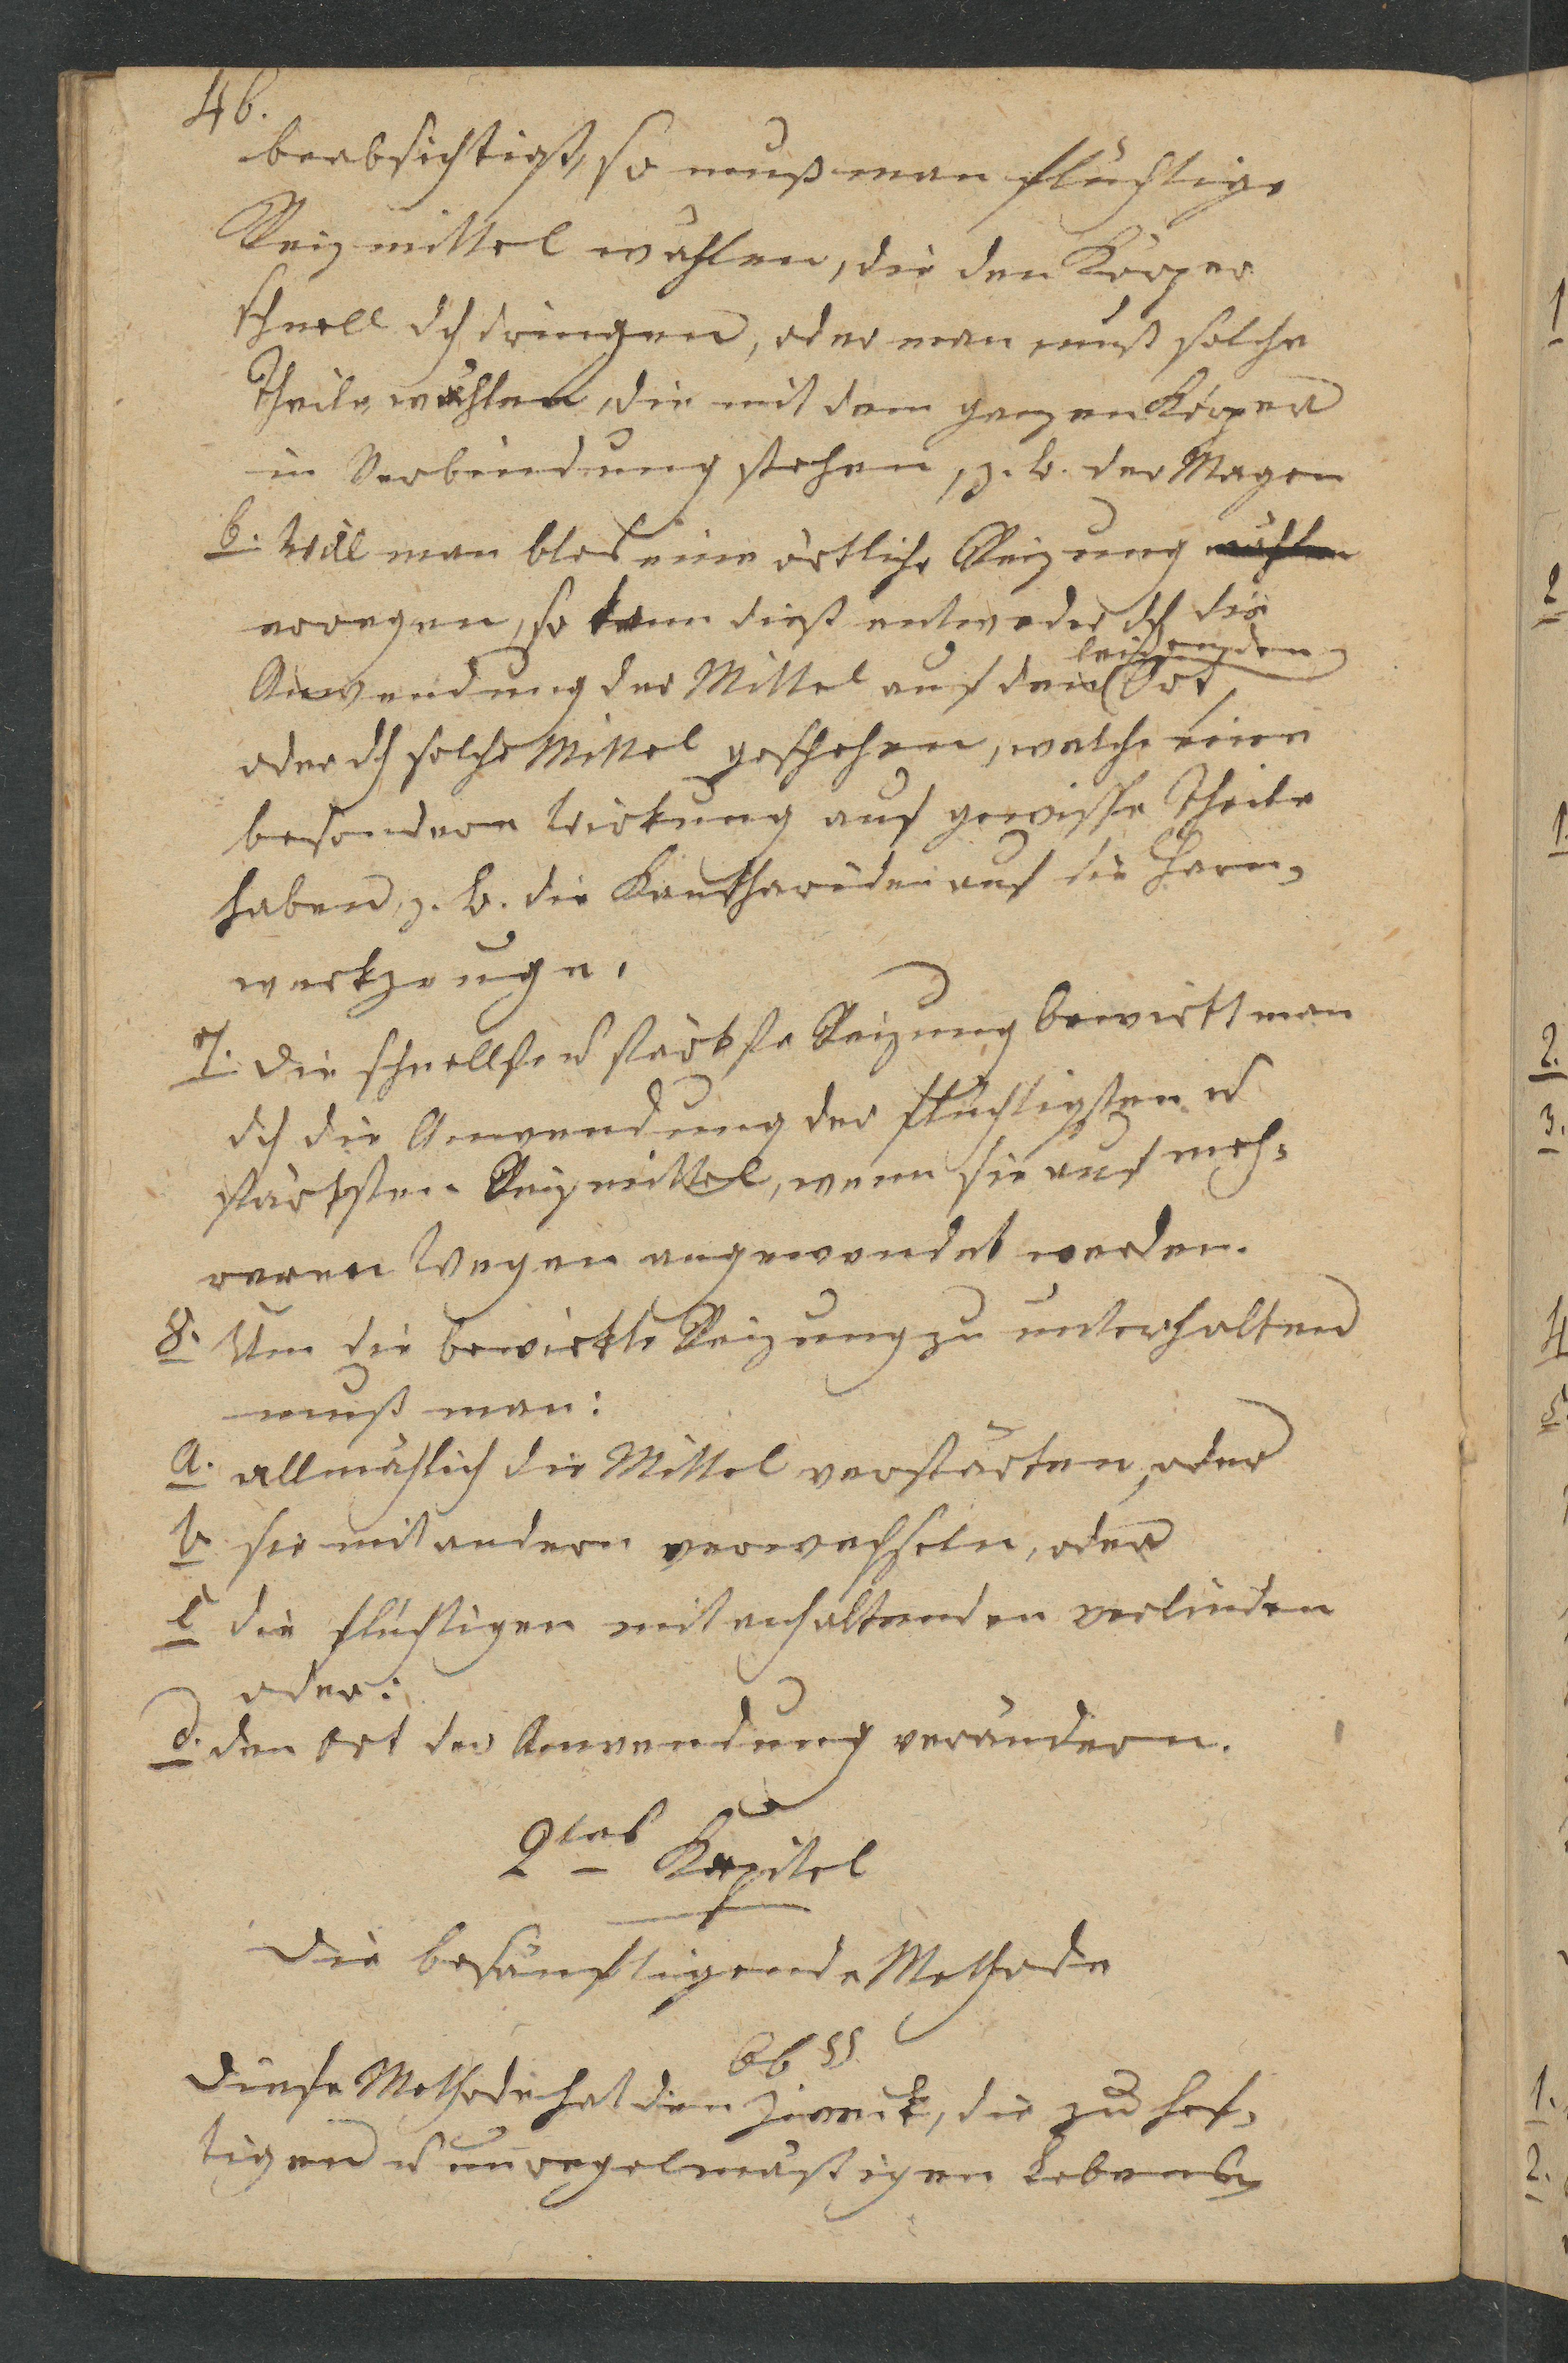 46.
beabsichtigt, so muß man flüchtige
Reizmittel wählen, die den Körper
schnell dch dringen, oder man muß solche
Theile wählen, die mit dem ganzen Körper
in Verbindung stehen, z. B. der Magen
b. Will man blos eine örtliche Reizung wählen
erregen, so kann dieß entweder dch die
leidenden
Anwendung der Mittel auf den Ort,
oder dch solche Mittel geschehen, welche eine
besondere Wirkung auf gewisse Theile
haben, z. B. die Kanthariden auf die Harn-
werkzeuge.
7. Die schnellste u stärkste Reizung bewirkt man
dch die Anwendung der flüchtigsten u
stärksten Reizmittel, wenn sie auf meh-
reren Wegen angewendet werden.
8. Um die bewirkte Reizung zu unterhalten
muß man:
a. allmählich die Mittel verstärken, oder
b. sie mit andern verwechseln, oder
c die flüchtigen mit anhaltenden verbinden
oder:
d. den Ort der Anwendung verändern.
2tes Kapitel
Die besänftigende Methode
66 §§.
Diese Methode hat den Zweck, die zu hef-
tigen u unregelmäßigen Lebens-